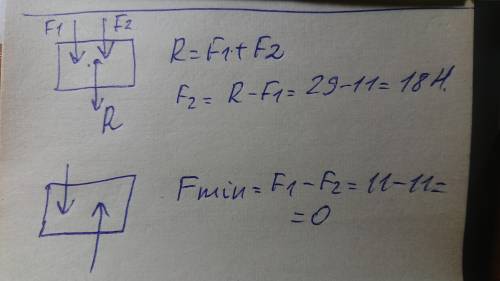 F1 F2
R = F1 + F2
F2 = R - F1 = 29 - 11 = 18 H.
R
Fmin = F1 - F2 = 11 - 11 =
= 0